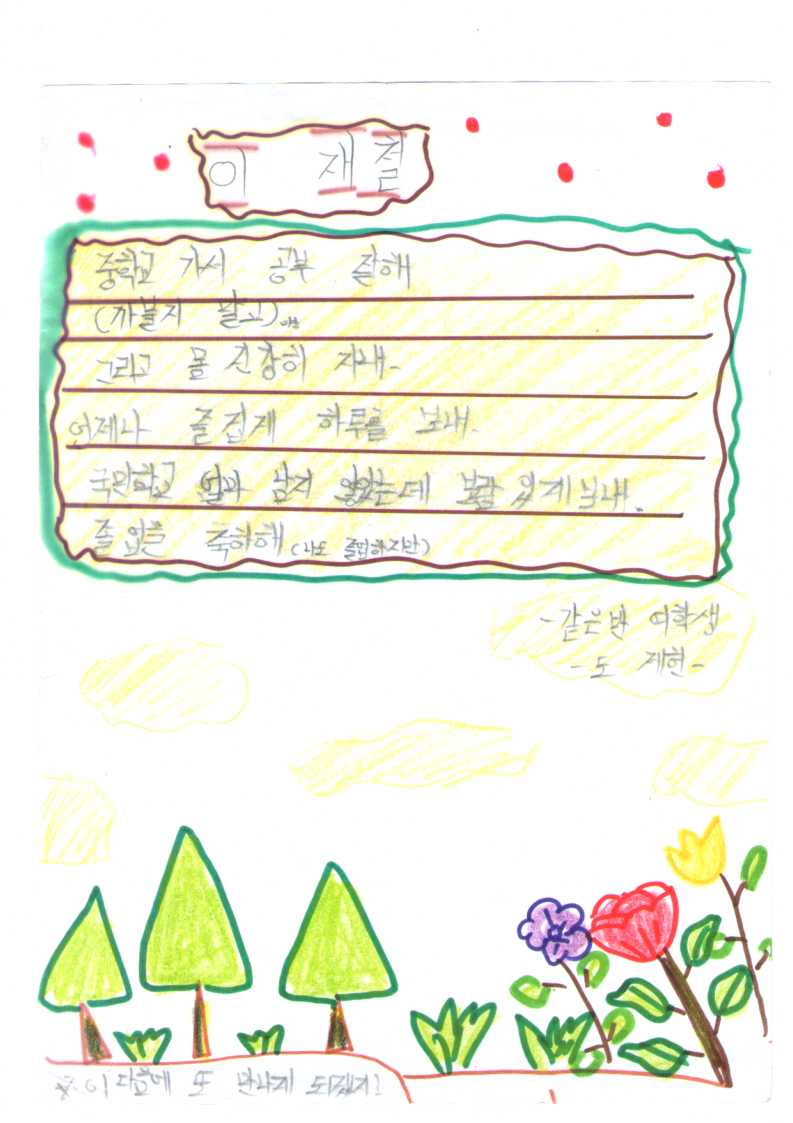 이 재철
중학교 가서 공부 잘해
(까불지 말고)
그리고 몸 건강히 지내-
언제나 즐겁게 하루를 보내-
국민학교 얼마 남지 않았는데 보람 있게 보내.
졸업을 축하해 (나도 졸업하지만)
-같은반 여학생
-도 제현-
※ 이 다음에 또 만나게 되겠지!